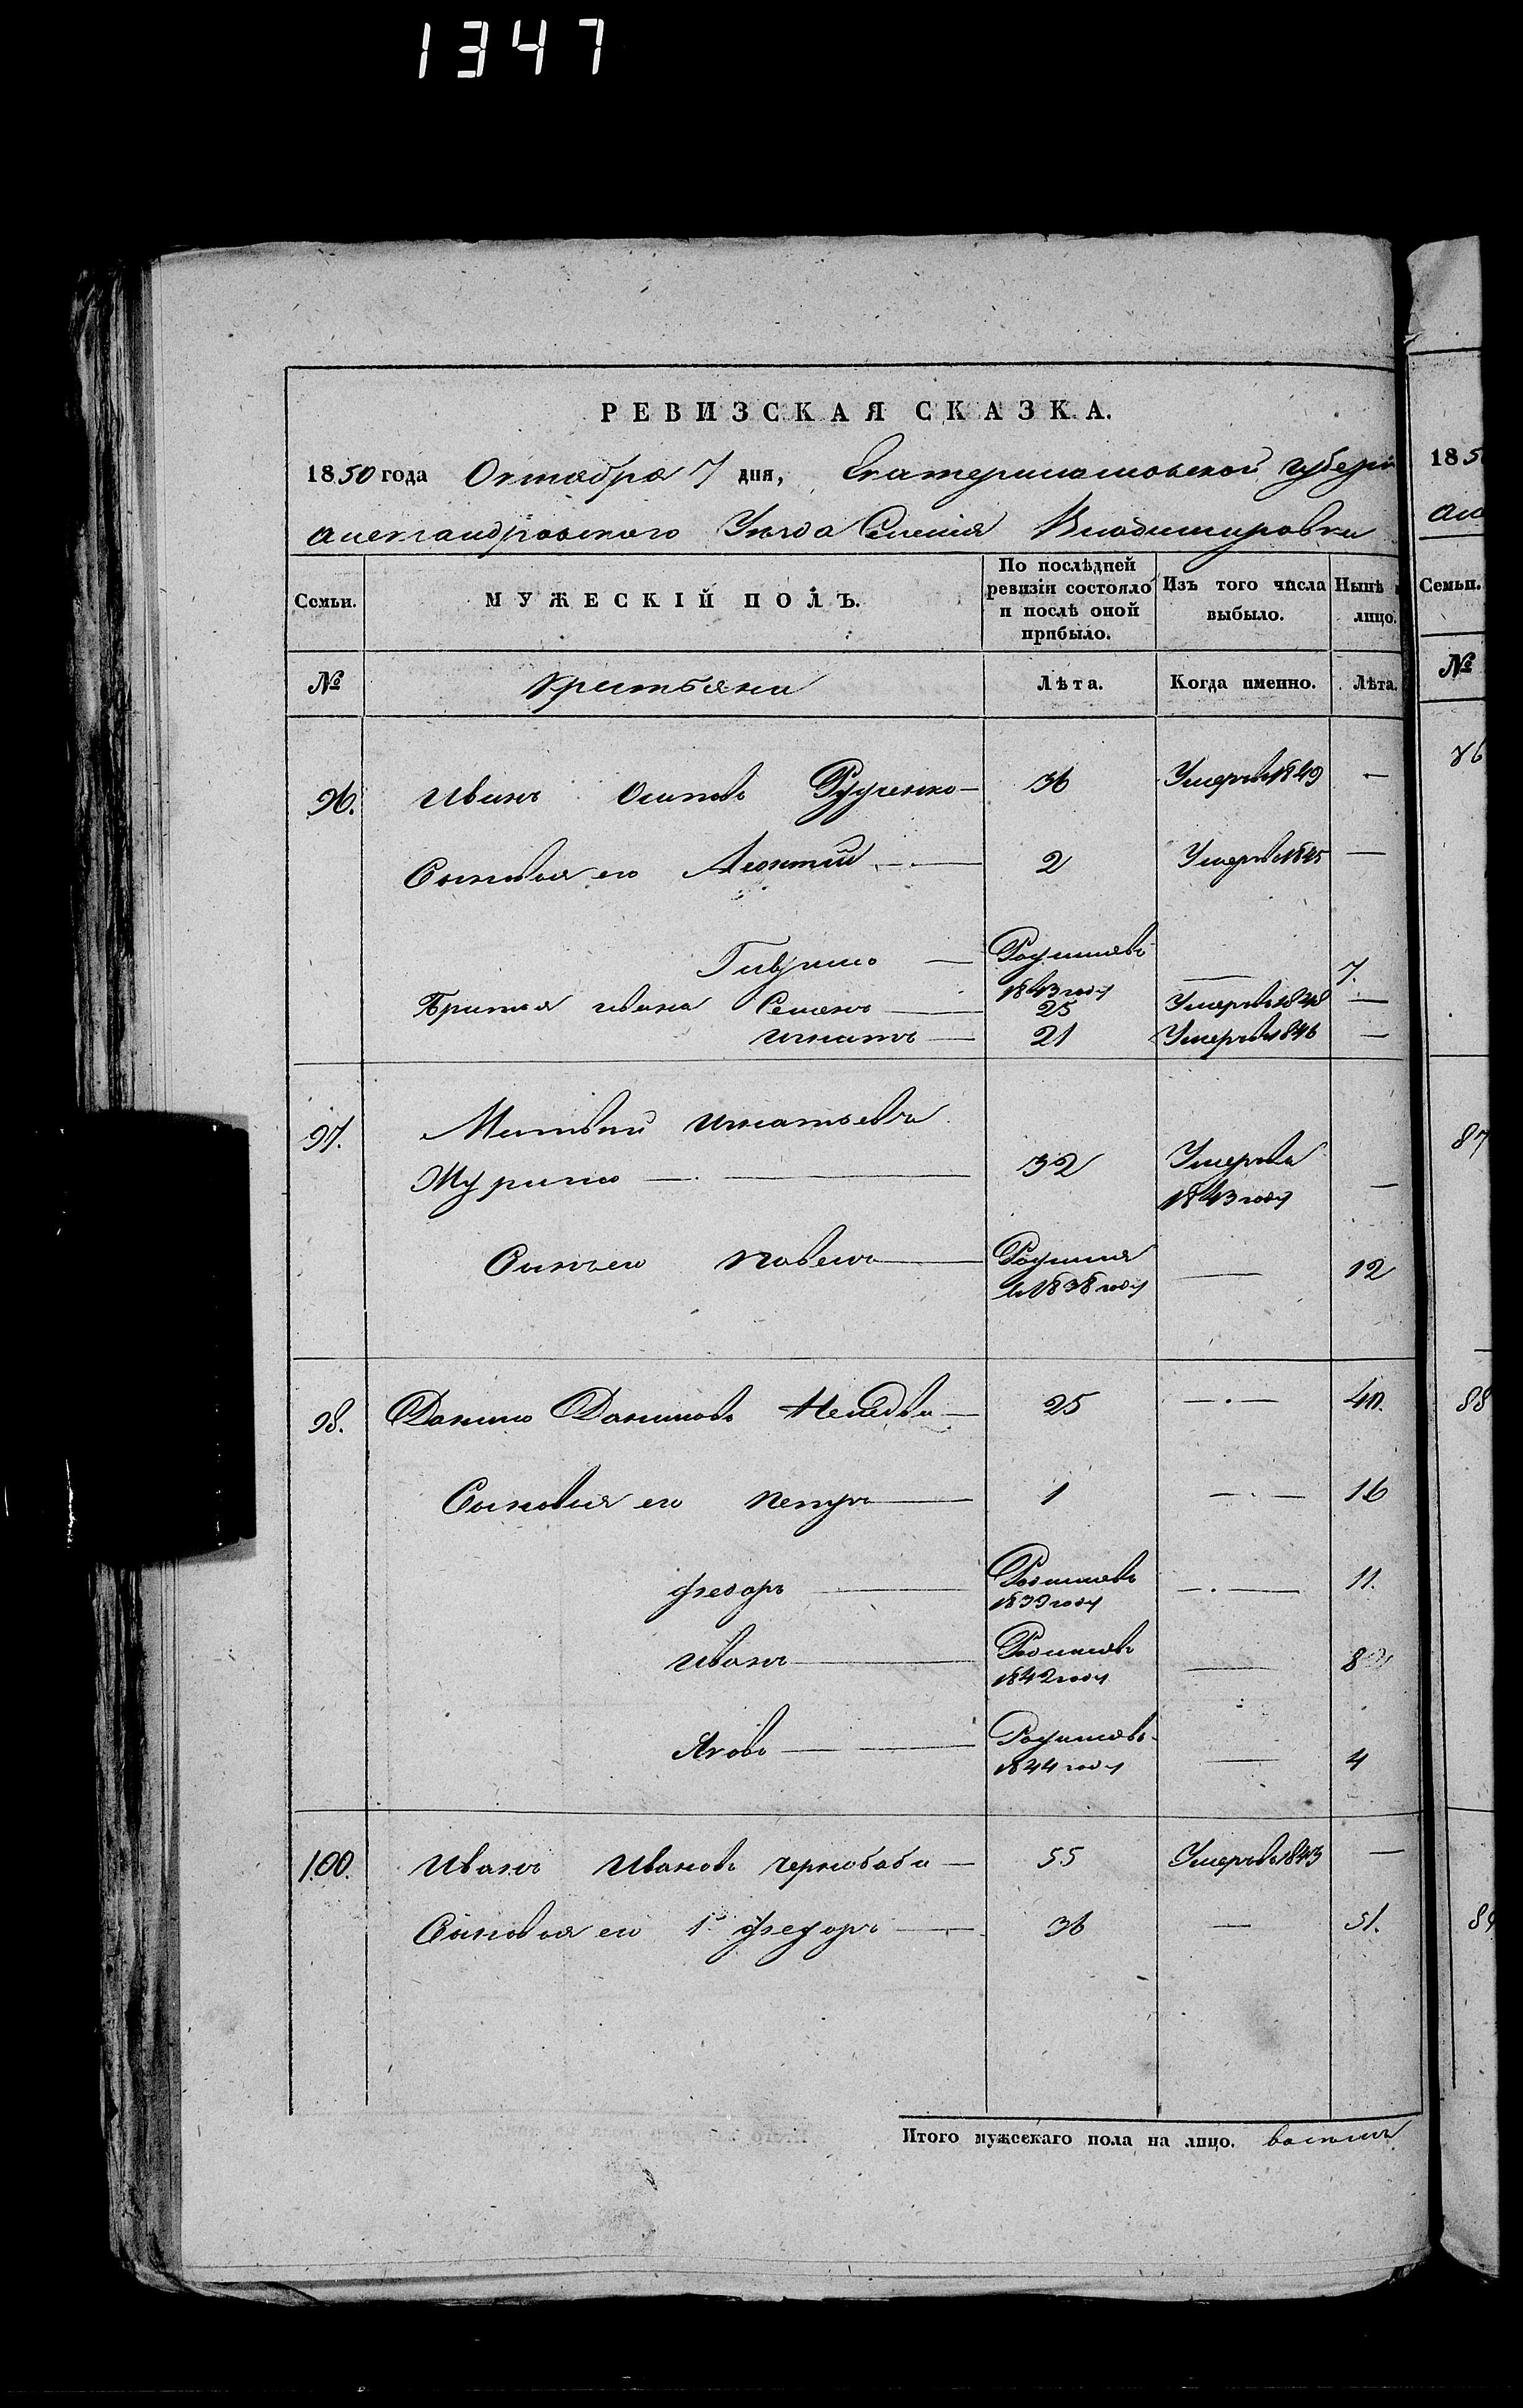 1347
РЕВИЗСКАЯ СКАЗКА.
1850 года Октября 7 дня, Екатеринославской губерн
Александровского Уезда Селения Владимировки
Семьи. МУЖЕСКІЙ ПОЛЪ. По послѣдней ревизіи состояло и послѣ оной прибыло. Изъ того числа выбыло. Нынѣ лицо.
№ крестьяни Лѣта. Когда именно. Лѣта.
96. Иванъ Осиповъ 36 Умеръ в 1849 —
Сыновья его Леонтий — 2 Умеръ в 1845 —
Гаврило — Родился въ 1843 году — 7.
Братья ивана Семенъ — 25 Умеръ в 1848 —
игнатъ — 21 Умеръ в 1846 —
97. Матвей игнатьевъ
Журило — 32 Умеръ в 1843 году —
Сынъ его павелъ — Родился в 1838 году — 12
98. Данило Даниловъ — 25 — 40.
Сыновья его петръ — 1 — 16
федоръ — Родился въ 1839 году — 11.
иванъ — Родился въ 1842 году — 8
Яковъ — Родился въ 1844 году — 4
100. Иванъ Ивановъ чернобаба — 55 Умеръ в 1843 —
Сыновья его 1й федоръ — 36 — 51.
Итого мужескаго пола на лицо. восемь
185
Але
Семьи.
№
86
87
88